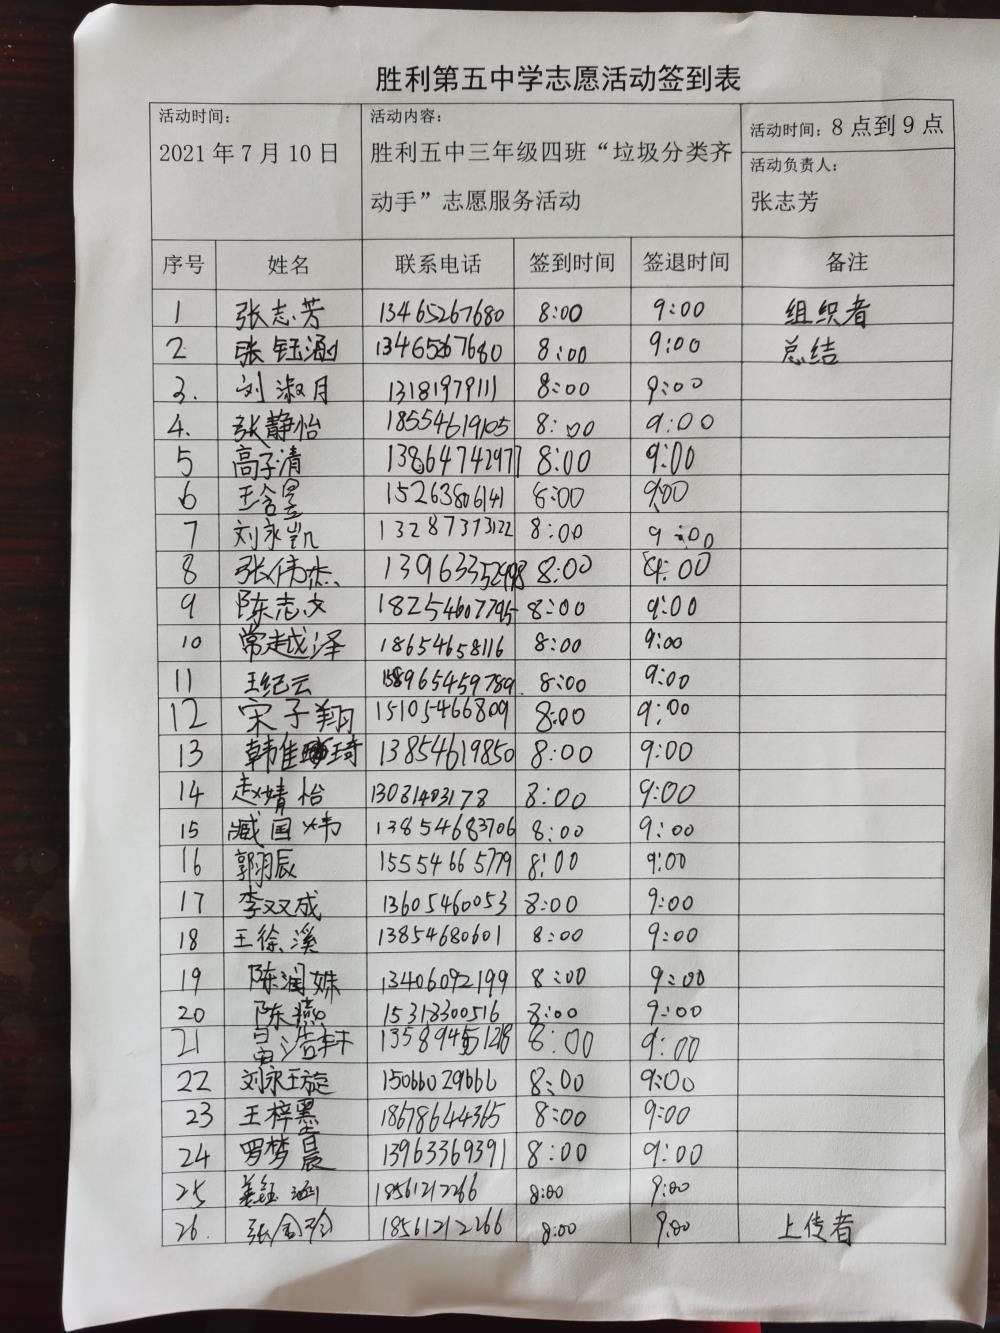 胜利第五中学志愿活动签到表
活动时间：
2021 年 7 月 10 日
活动内容：
胜利五中三年级四班“垃圾分类齐
动手”志愿服务活动
活动时间：8 点到 9 点
活动负责人：
张志芳
序号 姓名 联系电话 签到时间 签退时间 备注
1 张志芳 13465267680 8:00 9:00 组织者
2 张钰涵 13465267680 8:00 9:00 总结
3. 刘淑月 13181979111 8:00 9:00
4. 张静怡 18554619105 8:00 9:00
5 高子清 13864742977 8:00 9:00
6 王含昱 15263806141 8:00 9:00
7 刘永凯 13287373122 8:00 9:00
8 张伟杰 8:00 9:00
9 陈志文 18254607795 8:00 9:00
10 常越泽 18654658116 8:00 9:00
11 王纪云 8:00 9:00
12 宋子翔 15105466809 8:00 9:00
13 韩佳琦 13854619850 8:00 9:00
14 赵婧怡 13081403178 8:00 9:00
15 臧国炜 13854683706 8:00 9:00
16 郭羽辰 15554665779 8:00 9:00
17 李双成 13605460053 8:00 9:00
18 王徐溪 13854680601 8:00 9:00
19 陈润姝 13406092199 8:00 9:00
20 陈燕 15318300516 8:00 9:00
21 浩轩 8:00 9:00
22 刘永璇 15066029666 8:00 9:00
23 王梓 18678644365 8:00 9:00
24 罗梦晨 13963369391 8:00 9:00
25 姜钰涵 18561212266 8:00 9:00
26. 张金玲 18561212266 8:00 9:00 上传者